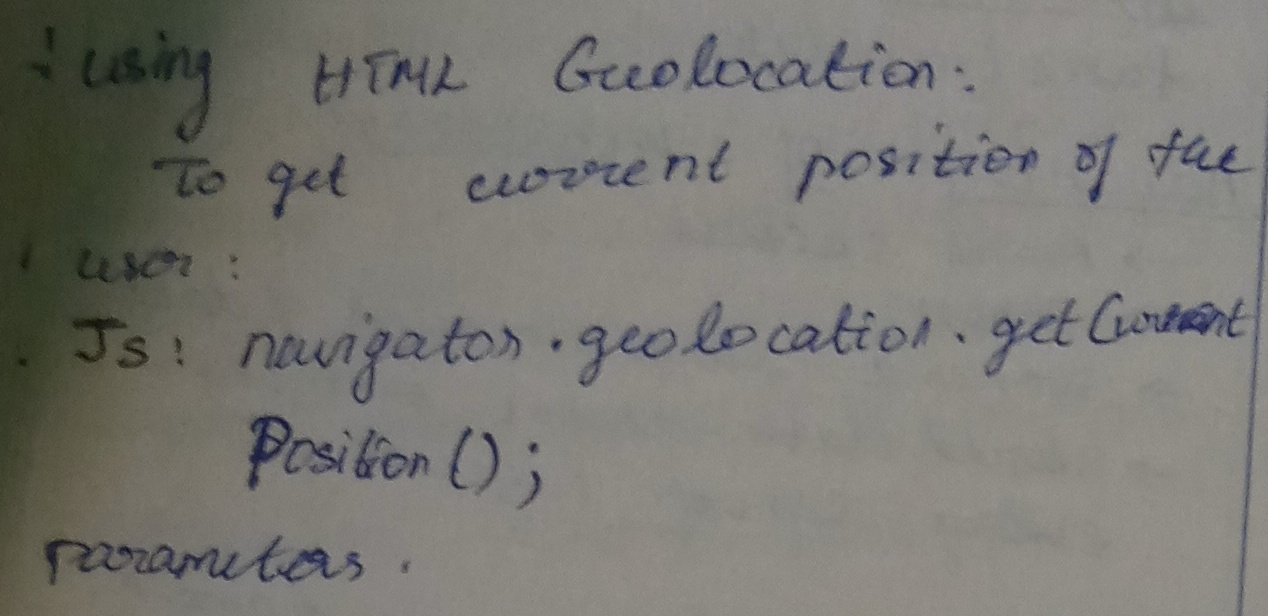 using HTML Geolocation:
To get current position of the
user :
Js : navigator.geolocation.getCurrent
Position();
parameters.